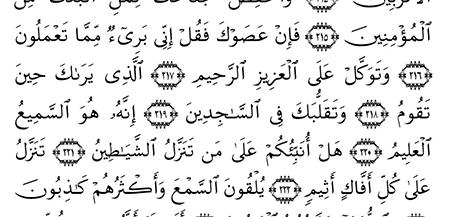 ٱلْمُؤْمِنِينَ ﴿٢١٥﴾ فَإِنْ عَصَوْكَ فَقُلْ إِنِّى بَرِىٓءٌ مِّمَّا تَعْمَلُونَ
﴿٢١٦﴾ وَتَوَكَّلْ عَلَى ٱلْعَزِيزِ ٱلرَّحِيمِ ﴿٢١٧﴾ ٱلَّذِى يَرَىٰكَ حِينَ
تَقُومُ ﴿٢١٨﴾ وَتَقَلُّبَكَ فِى ٱلسَّـٰجِدِينَ ﴿٢١٩﴾ إِنَّهُۥ هُوَ ٱلسَّمِيعُ
ٱلْعَلِيمُ ﴿٢٢٠﴾ هَلْ أُنَبِّئُكُمْ عَلَىٰ مَن تَنَزَّلُ ٱلشَّيَـٰطِينُ ﴿٢٢١﴾ تَنَزَّلُ
عَلَىٰ كُلِّ أَفَّاكٍ أَثِيمٍ ﴿٢٢٢﴾ يُلْقُونَ ٱلسَّمْعَ وَأَكْثَرُهُمْ كَـٰذِبُونَ